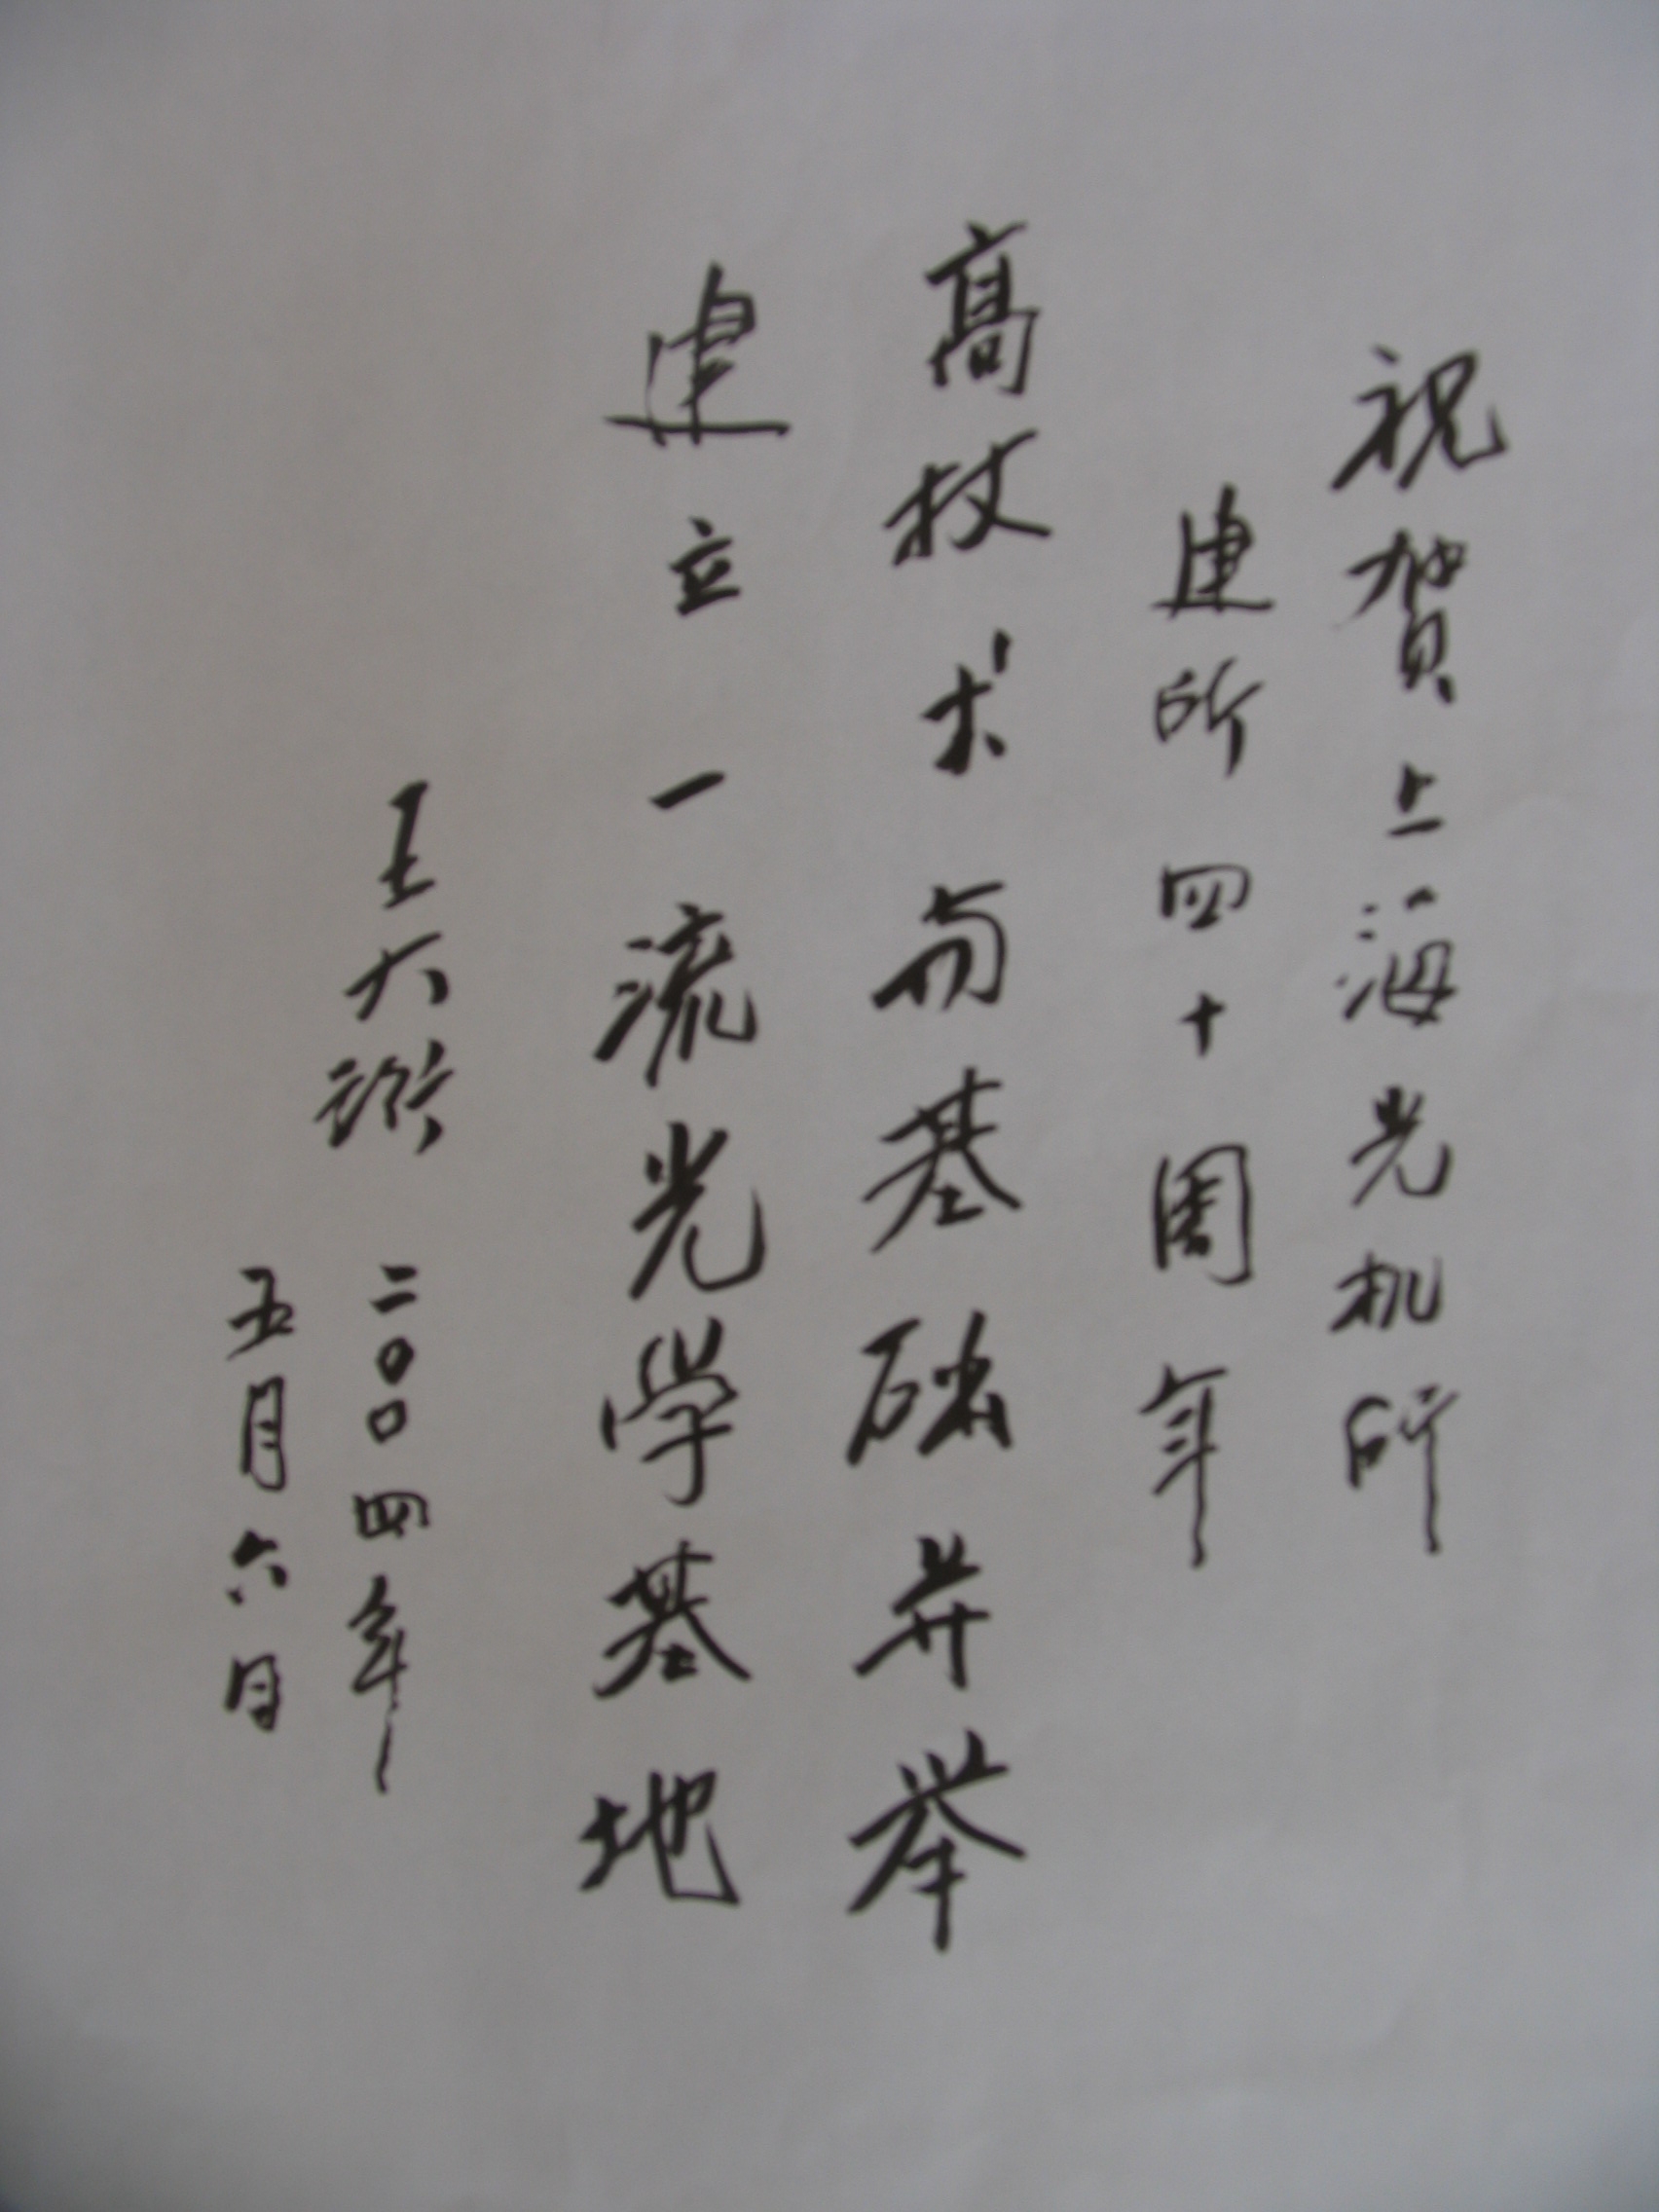 祝賀上海光机所
建所四十周年
高技术与基础并举
建立一流光学基地
王大珩
二〇〇四年
五月六日